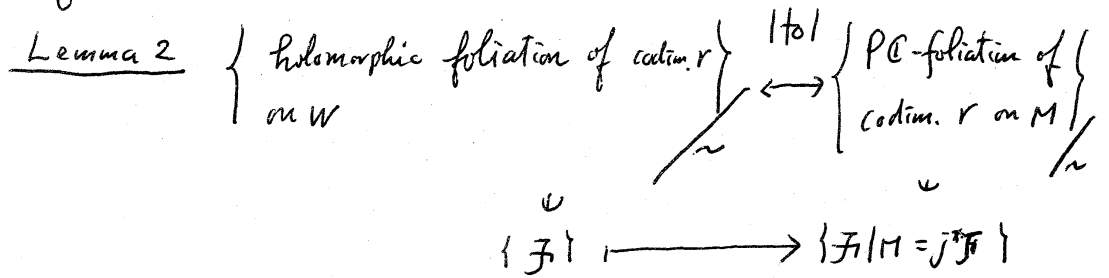 Lemma 2 { holomorphic foliation of codim. r on W } / ~ ⟷ 1 to 1 { PC-foliation of codim. r on M } / ~
∪ ∪
{ℱ} ⟼ {ℱ|M = j*ℱ}